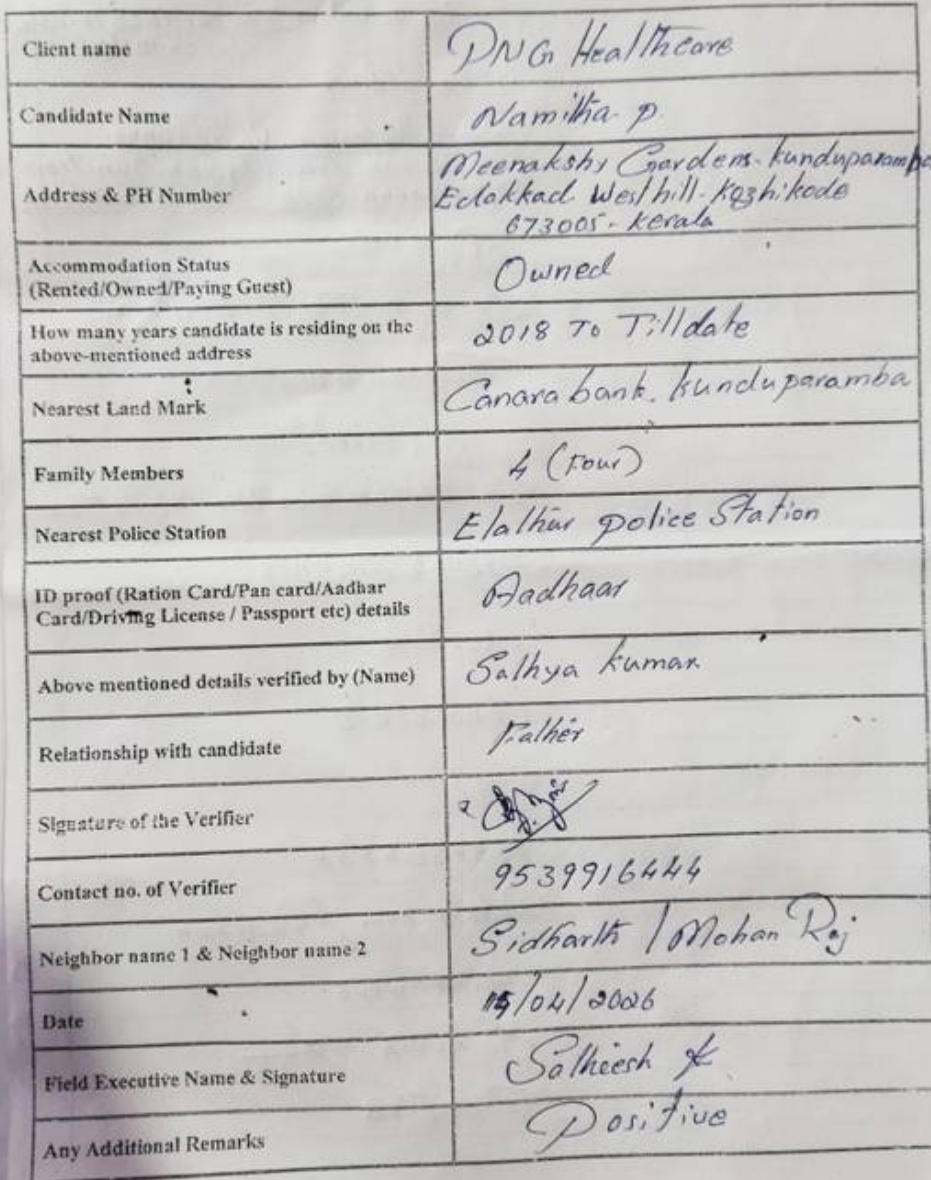 Client name
PNG Healthcare
Candidate Name
Namitha p.
Address & PH Number
Meenakshy Gardens. kunduparamba
Edakkad. West hill - Kozhikode
673005 - Kerala
Accommodation Status
(Rented/Owned/Paying Guest)
Owned
How many years candidate is residing on the
above-mentioned address
2018 To Till date
Nearest Land Mark
Canara bank. kunduparamba
Family Members
4 (Four)
Nearest Police Station
Elathur police Station
ID proof (Ration Card/Pan card/Aadhar
Card/Driving License / Passport etc) details
Aadhaar
Above mentioned details verified by (Name)
Sathya kumar
Relationship with candidate
Father
Signature of the Verifier
Contact no. of Verifier
9539916444
Neighbor name 1 & Neighbor name 2
Sidharth / Mohan Raj
Date
/04/2026
Field Executive Name & Signature
Satheesh
Any Additional Remarks
Positive